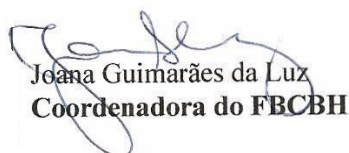 Joana Guimarães da Luz
Coordenadora do FBCBH